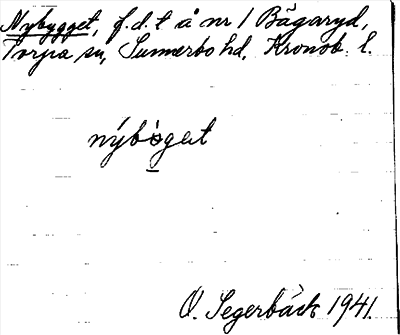 Nybygget, f.d.t å nr 1 Bågaryd,
Torpa sn, Sunnerbo hd, Kronob. l.
nýbògət
O. Segerbäck 1941.